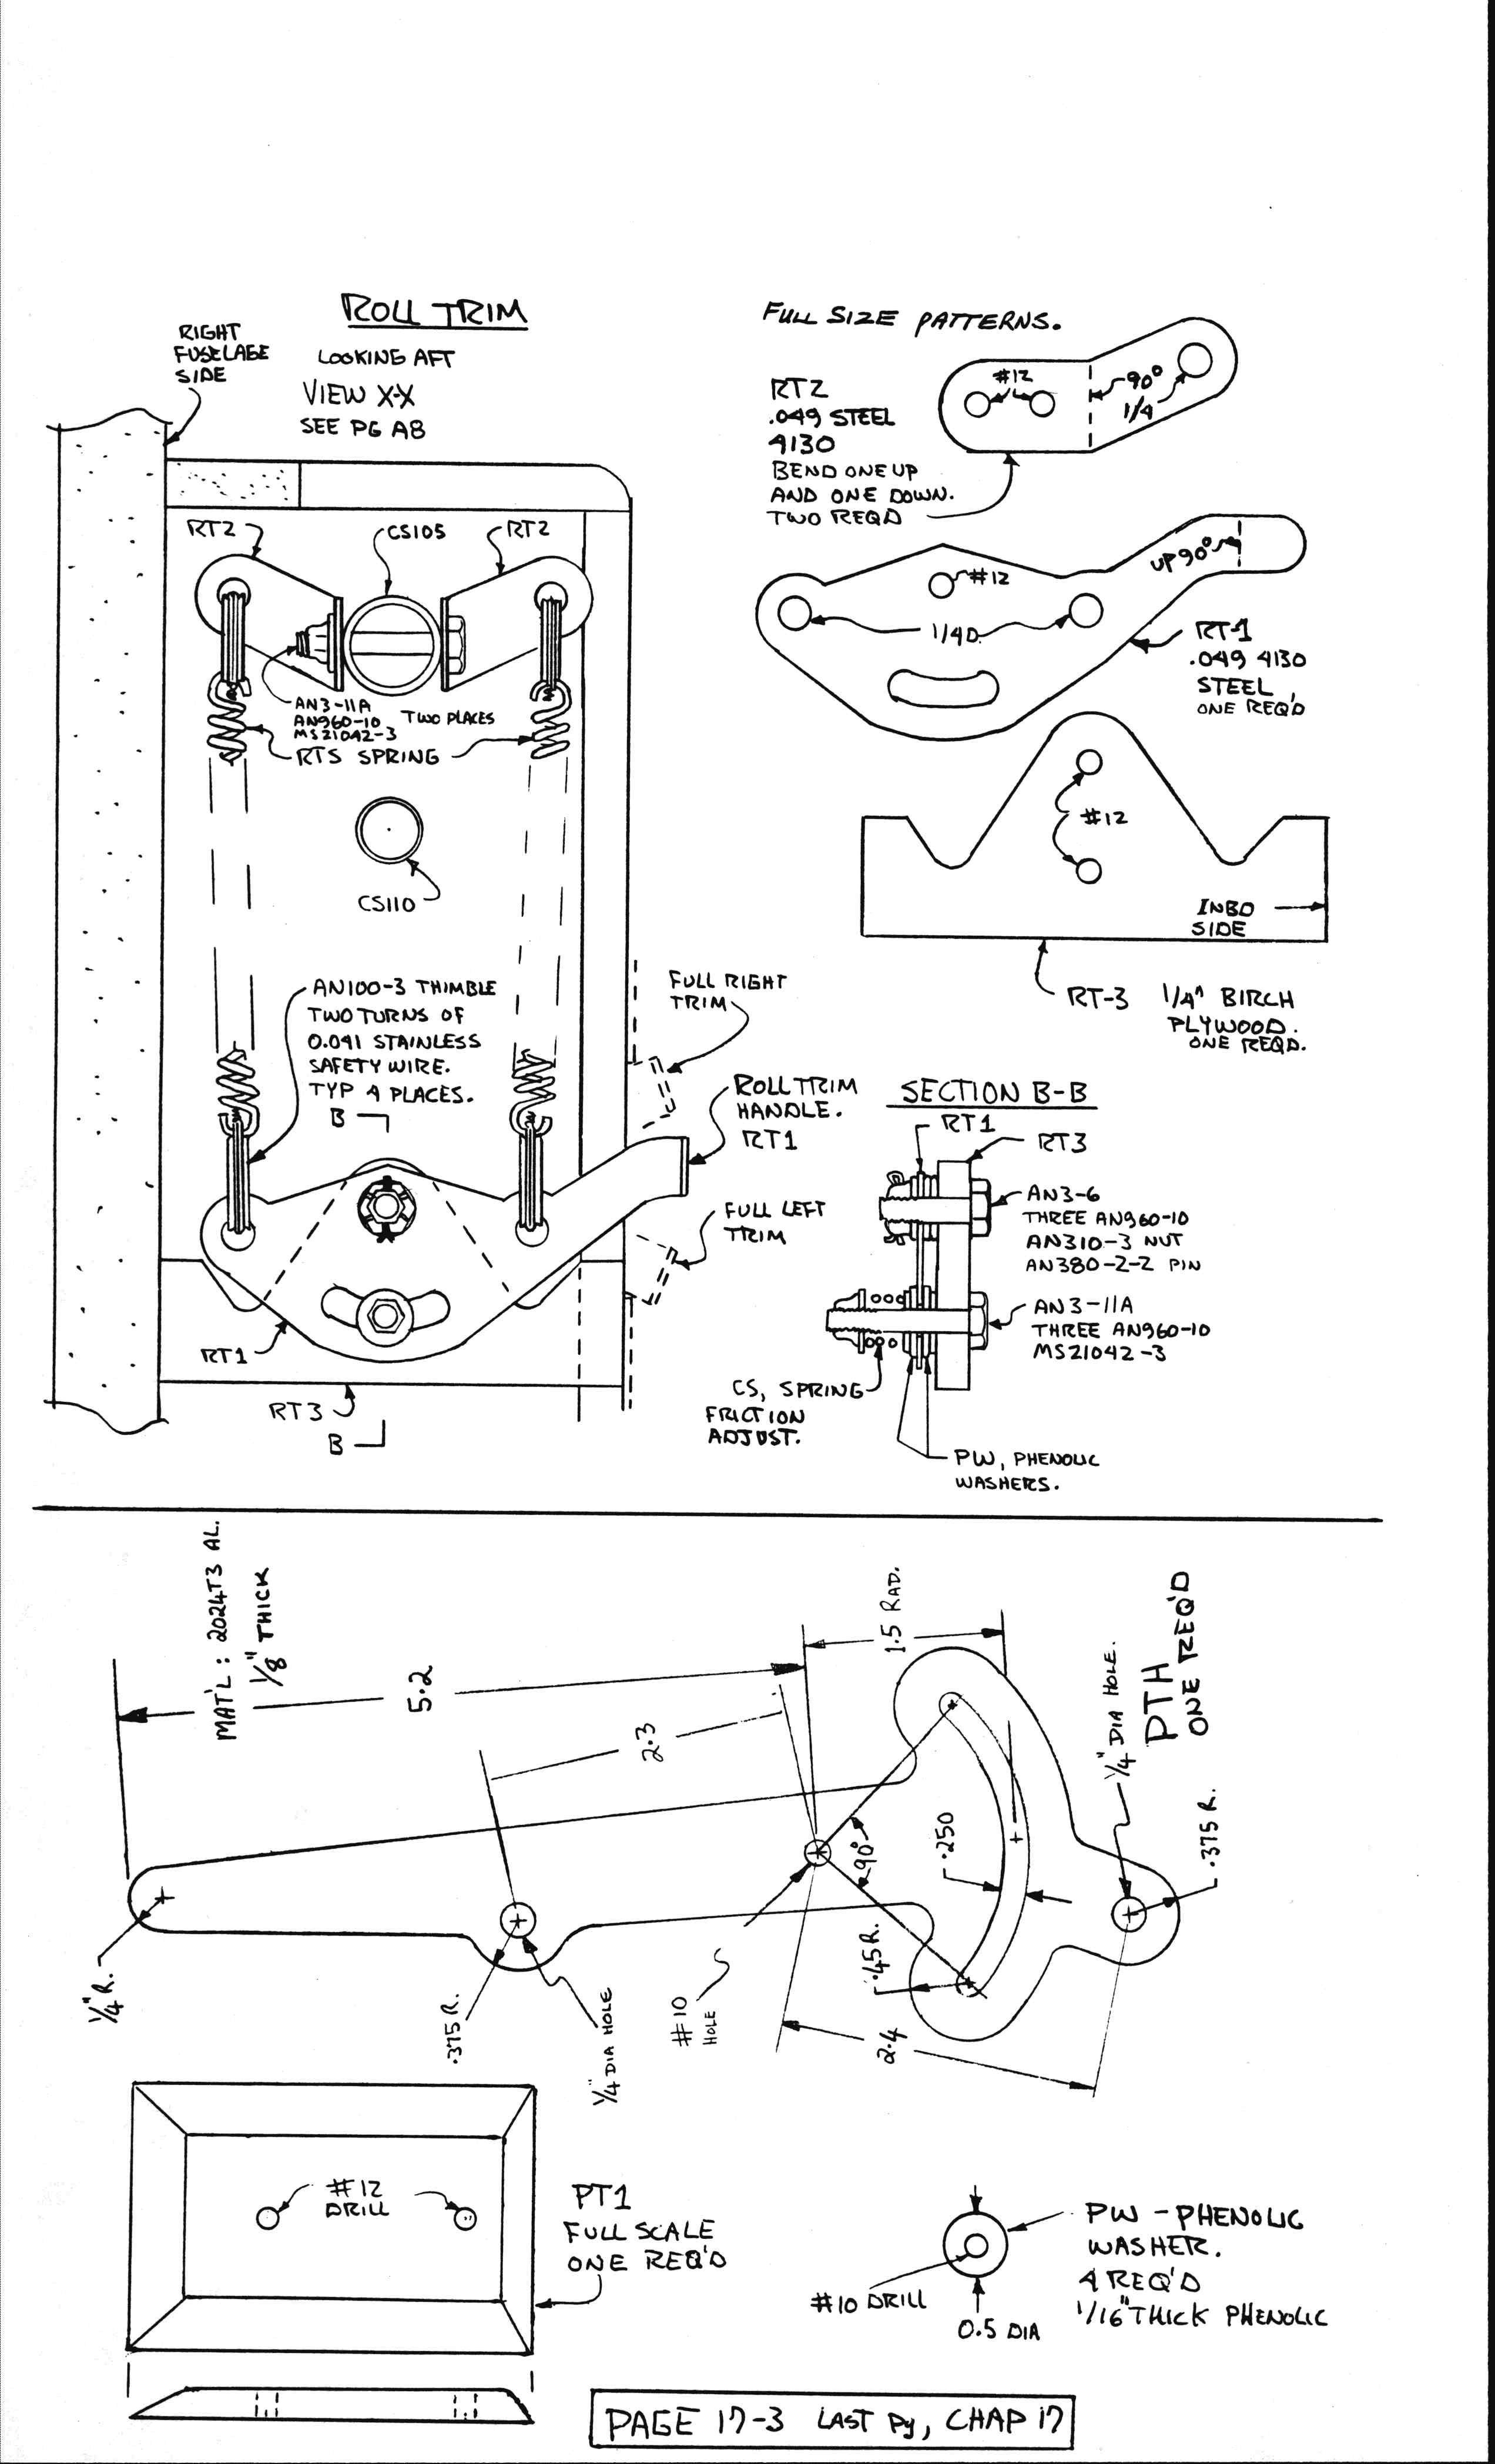 ROLL TRIM
LOOKING AFT
VIEW X-X
SEE PG A8
RIGHT
FUSELAGE
SIDE
RT2
CS105
RT2
AN3-11A
AN960-10
MS21042-3
TWO PLACES
RTS SPRING
CS110
AN100-3 THIMBLE
TWO TURNS OF
0.041 STAINLESS
SAFETY WIRE.
TYP 4 PLACES.
B
FULL RIGHT
TRIM
ROLL TRIM
HANDLE.
RT1
FULL LEFT
TRIM
RT1
RT3
B
FULL SIZE PATTERNS.
RT2
.049 STEEL
4130
BEND ONE UP
AND ONE DOWN.
TWO REQD
#12
90°
1/4
UP 90°
#12
1/4D.
RT-1
.049 4130
STEEL,
ONE REQ'D
#12
INBD
SIDE
RT-3 1/4" BIRCH
PLYWOOD.
ONE REQD.
SECTION B-B
RT1
RT3
AN3-6
THREE AN960-10
AN310-3 NUT
AN380-2-2 PIN
AN3-11A
THREE AN960-10
MS21042-3
CS, SPRING
FRICTION
ADJUST.
PW, PHENOLIC
WASHERS.
MAT'L: 2024T3 AL.
1/8" THICK
5.2
2.3
1.5 RAD.
90°
.250
1/4" DIA HOLE.
PTH
ONE REQ'D
.375 R.
1/4" R.
.375 R.
1/4" DIA HOLE
#10
HOLE
.45 R.
2.4
#12
DRILL
PT1
FULL SCALE
ONE REQ'D
#10 DRILL
0.5 DIA
PW - PHENOLIC
WASHER.
4 REQ'D
1/16" THICK PHENOLIC
PAGE 17-3 LAST Pg, CHAP 17